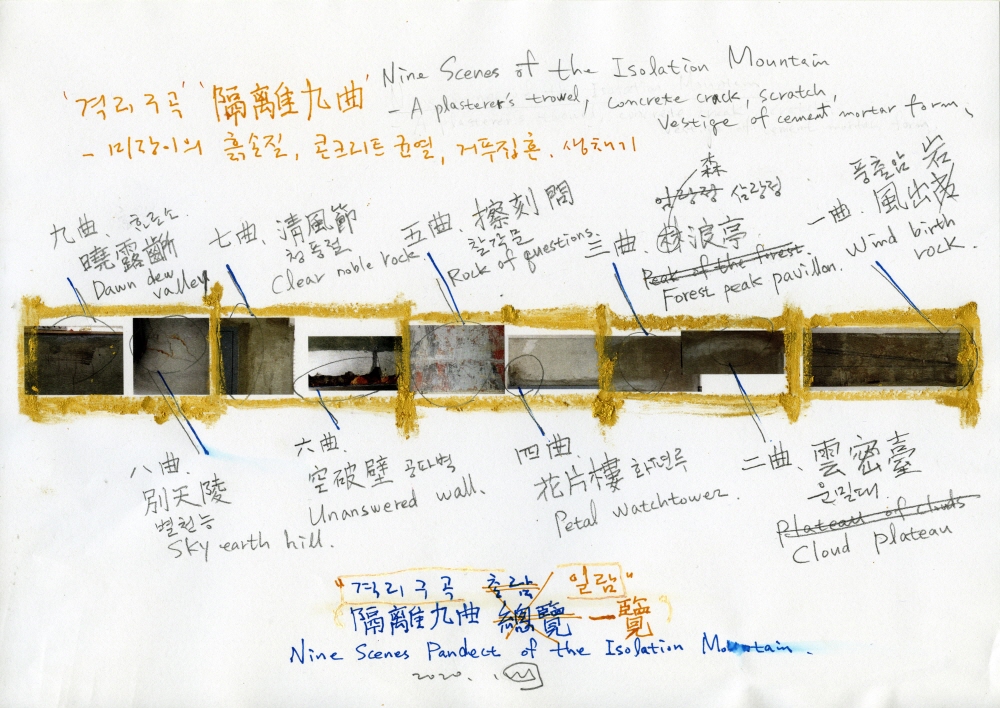 '격리구곡' '隔離九曲' Nine Scenes of the Isolation Mountain
- A plasterer's trowel, concrete crack, scratch,
Vestige of cement mortar form,
- 미장이의 흙손질, 콘크리트 균열, 거푸집흔, 생채기
九曲. 효로소
曉露齗
Dawn dew
valley
七曲. 清風節
청풍절
Clear noble rock.
五曲. 擦刻問
찰각문
Rock of questions.
森
삼랑정
三曲. 林波亭
Peak of the forest
Forest peak pavillon.
풍출암 岩
一曲. 風出岩
Wind birth
rock.
八曲.
別天陵
별천능
Sky earth hill.
六曲.
空破壁 공파벽
Unanswered wall.
四曲.
花片樓 화편루
Petal watchtower.
二曲. 雲密臺
운밀대.
Plateau of clouds
Cloud plateau
"격리구곡 총람 일람"
隔離九曲 總覽 一覽
Nine Scenes Pandect of the Isolation Mountain.
2020.